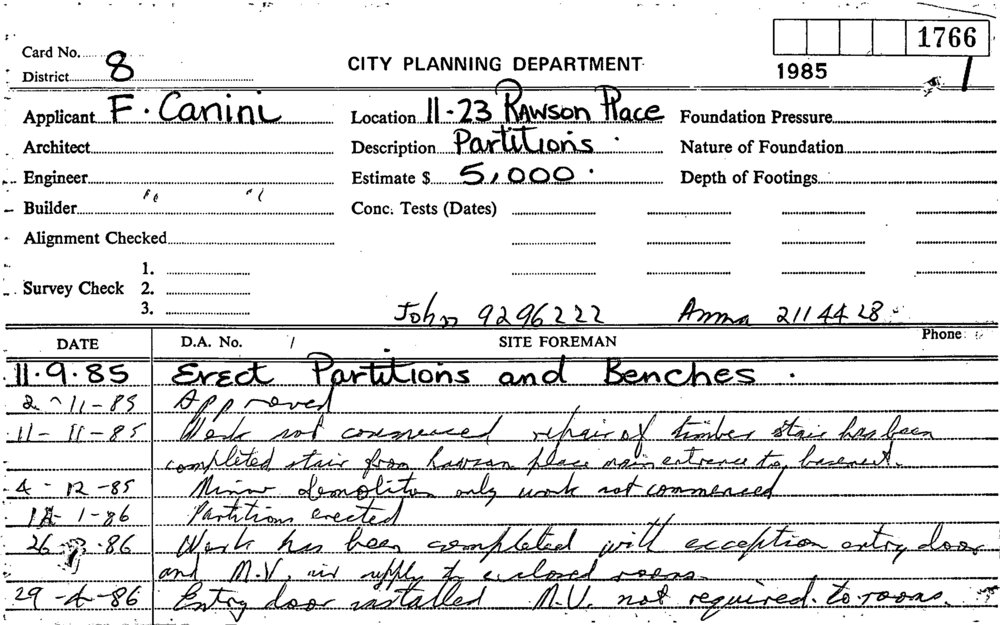 1766
Card No.
District 8
CITY PLANNING DEPARTMENT
1985
Applicant F. Canini
Location 11-23 Rawson Place
Foundation Pressure
Architect
Description Partitions.
Nature of Foundation
Engineer
Estimate $ 5,000.
Depth of Footings
Builder " "
Conc. Tests (Dates)
Alignment Checked
1.
Survey Check 2.
3.
John 9296222 Anna 2114428
DATE D.A. No. SITE FOREMAN Phone
11.9.85 Erect Partitions and Benches.
2-11-85 Approved
11-11-85 Work not commenced repair of timber stair has been
completed stair from Rawson place main entrance to basement.
4-12-85 Minor demolition only work not commenced
1-86 Partitions erected
26 86 Work has been completed with exception entry door
and M.V. air supply to enclosed rooms
29-4-86 Entry door installed M.V. not required to rooms.